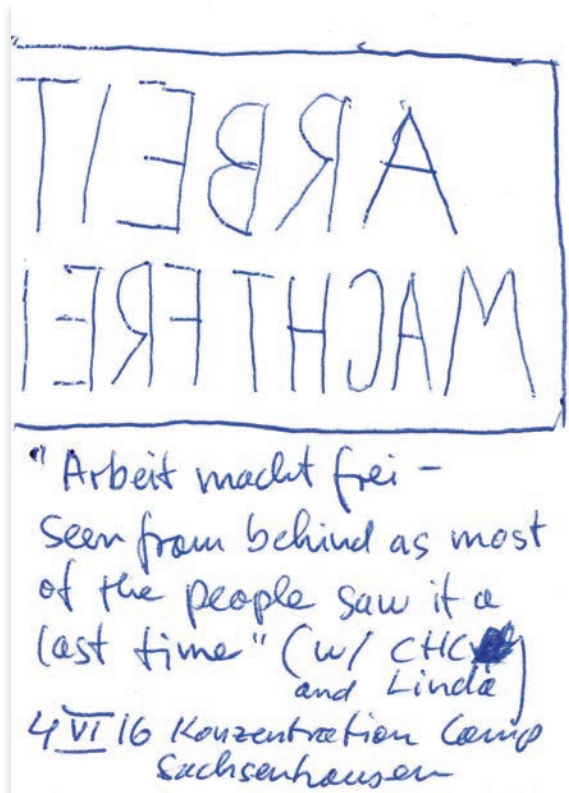 ARBEIT
MACHT FREI
"Arbeit macht frei –
seen from behind as most
of the people saw it a
last time" (w/ CHC )
and Linda
4 VI 16 Konzentration Camp
Sachsenhausen